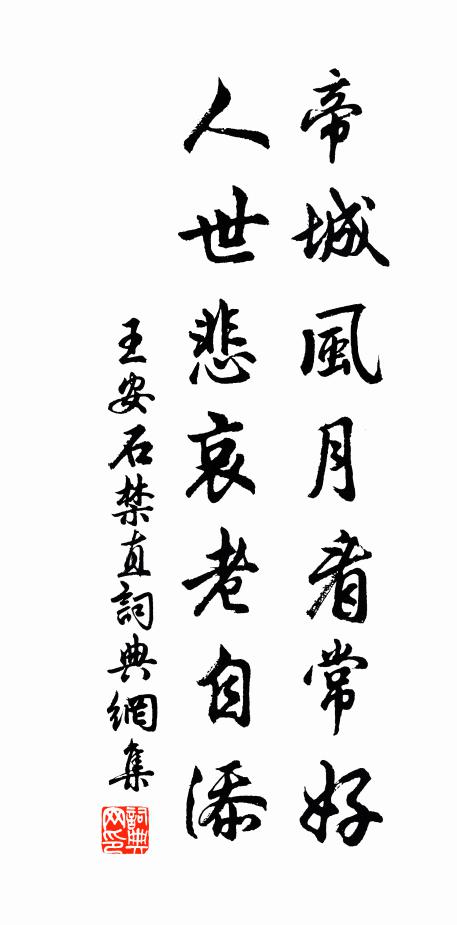 帝城風月看常好
人世悲哀老自添
王安石禁直詞典網集
詞典網印